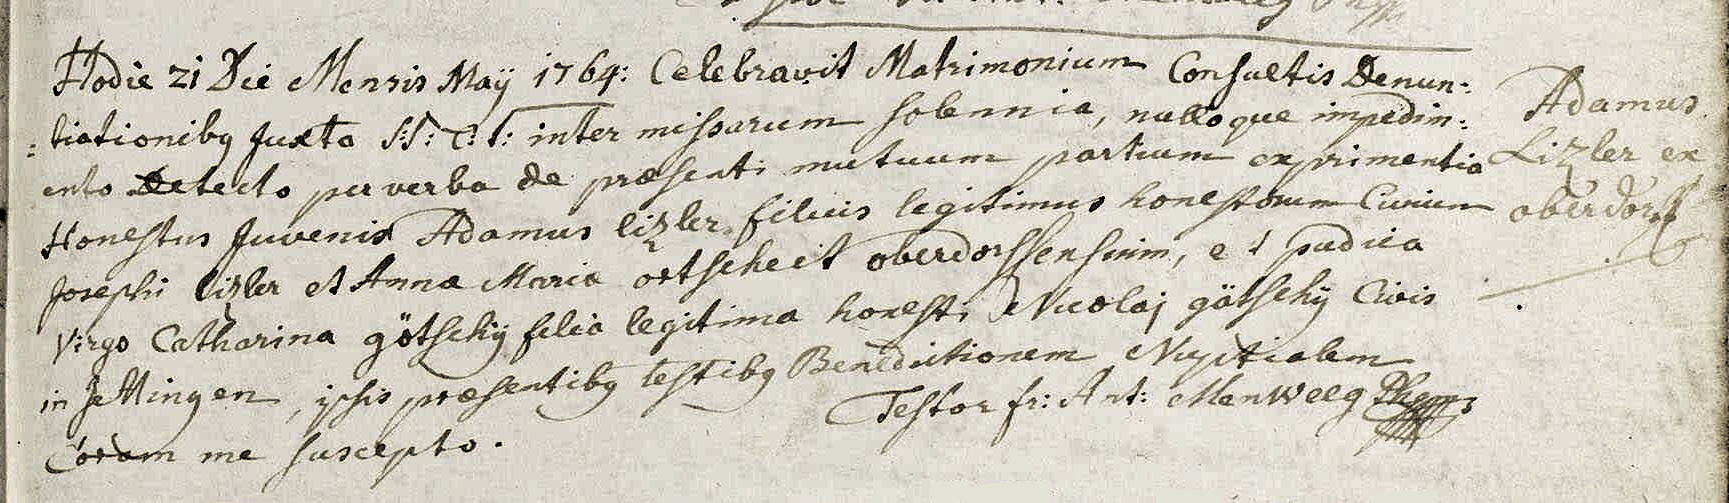 Hodie 21 Die Mensis Maÿ 1764: Celebravit Matrimonium Consuetis Denun:
:tiationibq Juxta S:S: C:T: inter missarum solennia, nulloque impedim:
ento Detecto per verba de præsenti mutuum partium exprimentia
Honestus Juvenis Adamus lizler filius legitimus honestorum Civium
Josephi lizler et Anna Maria ortscheit oberdorffensium, et pudica
Virgo Catharina götschÿ filia legitima honesti Nicolaj götschÿ Civis
in Jettingen, ipsis præsentibq testibq Benedictionem Nuptialem
Coram me suscepto.
Testor fr: Ant: Menweeg
Adamus
Lizler ex
oberdorff